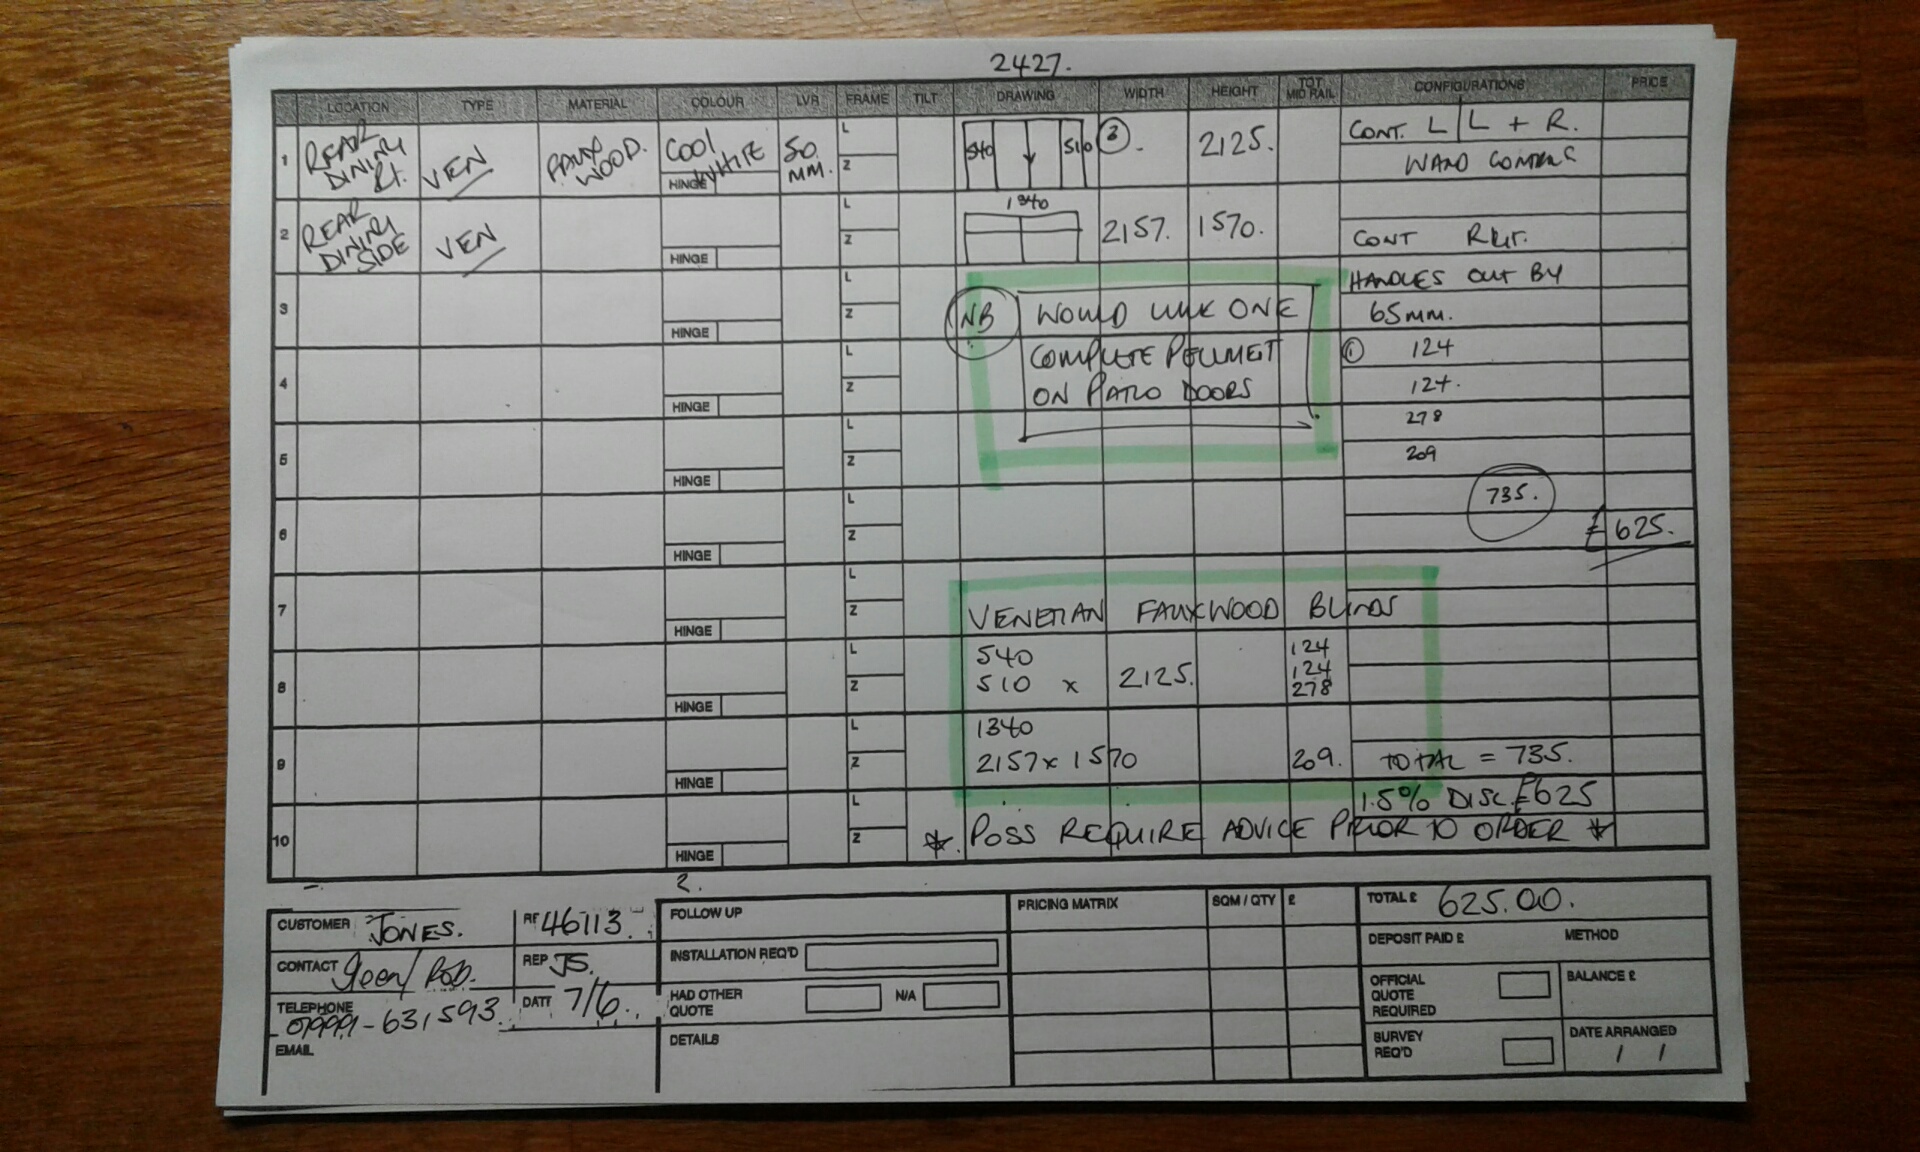 2427.
LOCATION TYPE MATERIAL COLOUR LVR FRAME TILT DRAWING WIDTH HEIGHT TOT MID RAIL CONFIGURATIONS PRICE
1 REAR DINING Rt. VEN FAUX WOOD. COOL WHITE 50 MM. L 540 510 3. 2125. CONT. L | L + R.
HINGE Z WAND CONTROLS
2 REAR DINING SIDE VEN L 1340 2157. 1570.
HINGE Z CONT RHT.
3 L HANDLES OUT BY
HINGE Z NB WOULD LIKE ONE 65MM.
4 L COMPLETE PELLMET 1 124
HINGE Z ON PATIO DOORS 124.
5 L 278
HINGE Z 209
6 L 735.
HINGE Z £625.
7 L
HINGE Z VENETIAN FAUXWOOD BLINDS
8 L 540 124
HINGE Z 510 x 2125. 124
278
9 L 1340
HINGE Z 2157 x 1570 209. TOTAL = 735.
10 L 15% DISC. £625
HINGE Z * POSS REQUIRE ADVICE PRIOR TO ORDER *
2.
CUSTOMER JONES. RF 46113.
CONTACT REP JS.
TELEPHONE DATE 7/6
EMAIL
FOLLOW UP
INSTALLATION REQ'D
HAD OTHER QUOTE N/A
DETAILS
PRICING MATRIX SQM / QTY £
TOTAL £ 625.00.
DEPOSIT PAID £ METHOD
OFFICIAL QUOTE REQUIRED BALANCE £
SURVEY REQ'D DATE ARRANGED
/ /